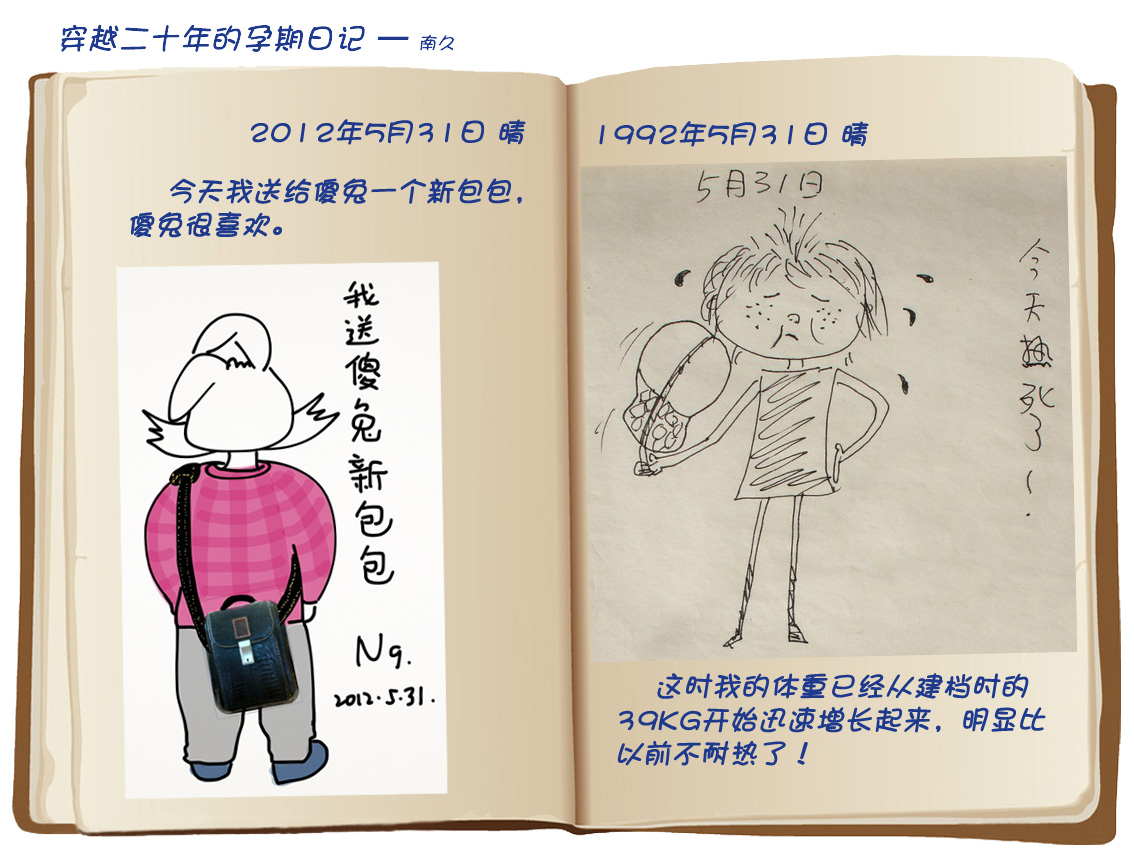 穿越二十年的孕期日记 — 南久
2012年5月31日 晴
今天我送给傻兔一个新包包，
傻兔很喜欢。
我送傻兔新包包
N9.
2012.5.31.
1992年5月31日 晴
5月31日
今天热死了！
这时我的体重已经从建档时的
39KG开始迅速增长起来，明显比
以前不耐热了！